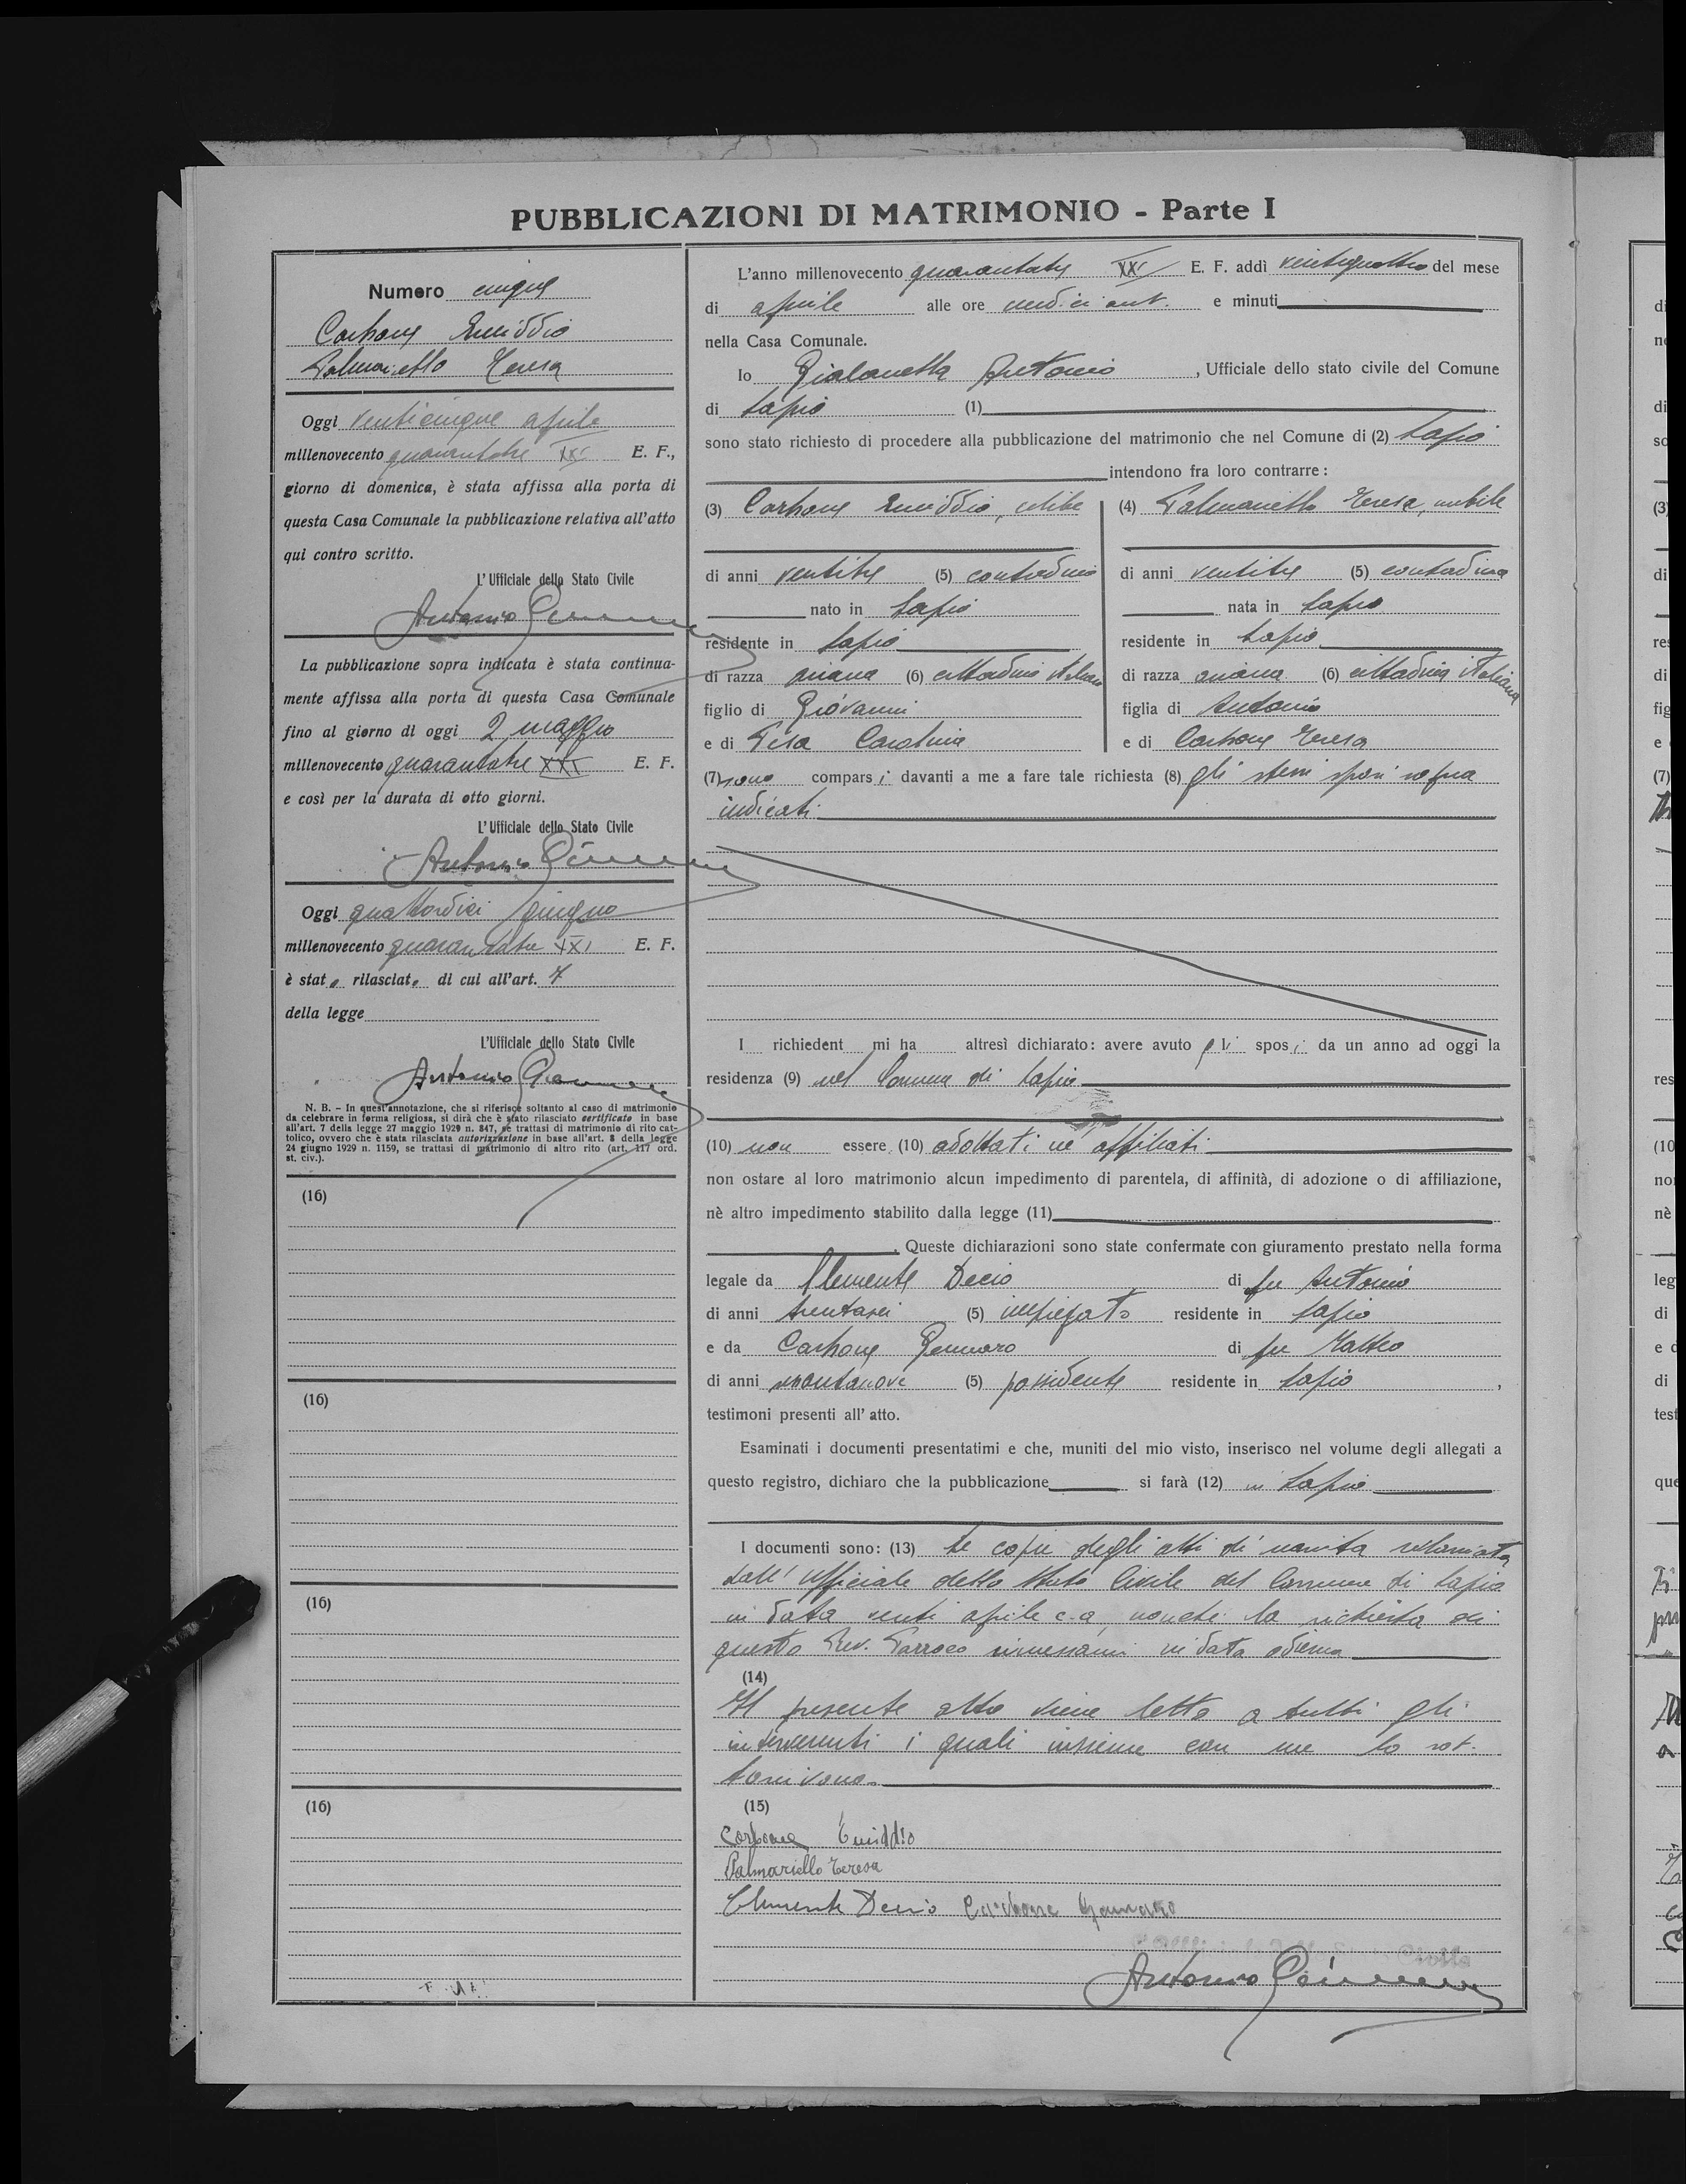 PUBBLICAZIONI DI MATRIMONIO - Parte I
Numero cinque
Carbone Emiddio
Palmariello Teresa
Oggi venticinque aprile
millenovecento quarantatre XXI E. F.,
giorno di domenica, è stata affissa alla porta di
questa Casa Comunale la pubblicazione relativa all'atto
qui contro scritto.
L'Ufficiale dello Stato Civile
Antonio
La pubblicazione sopra indicata è stata continua-
mente affissa alla porta di questa Casa Comunale
fino al giorno di oggi 2 maggio
millenovecento quarantatre XXI E. F.
e così per la durata di otto giorni.
L'Ufficiale dello Stato Civile
Antonio
Oggi quattordici giugno
millenovecento quarantatre XXI E. F.
è stato rilasciato di cui all'art. 7
della legge
L'Ufficiale dello Stato Civile
Antonio
N. B. - In quest'annotazione, che si riferisce soltanto al caso di matrimonio
da celebrare in forma religiosa, si dirà che è stato rilasciato certificato in base
all'art. 7 della legge 27 maggio 1929 n. 847, se trattasi di matrimonio di rito cat-
tolico, ovvero che è stata rilasciata autorizzazione in base all'art. 8 della legge
24 giugno 1929 n. 1159, se trattasi di matrimonio di altro rito (art. 117 ord.
st. civ.).
(16)
(16)
(16)
(16)
L'anno millenovecento quarantatre XXI E. F. addì ventiquattro del mese
di aprile alle ore undici ant. e minuti
nella Casa Comunale.
Io Gialanella Antonio, Ufficiale dello stato civile del Comune
di Lapio (1)
sono stato richiesto di procedere alla pubblicazione del matrimonio che nel Comune di (2) Lapio
intendono fra loro contrarre:
(3) Carbone Emiddio, celibe
di anni ventitre (5) contadino
nato in Lapio
residente in Lapio
di razza ariana (6) cittadino italiano
figlio di Giovanni
e di Pisa Carolina
(4) Palmariello Teresa, nubile
di anni ventitre (5) contadina
nata in Lapio
residente in Lapio
di razza ariana (6) cittadina italiana
figlia di Antonio
e di Carbone Teresa
(7) sono comparsi davanti a me a fare tale richiesta (8) gli stessi sposi sopra
indicati.
I richiedent mi ha altresì dichiarato: avere avuto gli sposi da un anno ad oggi la
residenza (9) nel Comune di Lapio
(10) non essere (10) adottati nè affiliati
non ostare al loro matrimonio alcun impedimento di parentela, di affinità, di adozione o di affiliazione,
nè altro impedimento stabilito dalla legge (11)
. Queste dichiarazioni sono state confermate con giuramento prestato nella forma
legale da Clemente Decio di fu Antonio
di anni trentasei (5) impiegato residente in Lapio
e da Carbone Gennaro di fu Matteo
di anni (5) possidente residente in Lapio,
testimoni presenti all' atto.
Esaminati i documenti presentatimi e che, muniti del mio visto, inserisco nel volume degli allegati a
questo registro, dichiaro che la pubblicazione si farà (12) in Lapio
I documenti sono: (13) le copie degli atti di nascita rilasciata
dall'Ufficiale dello Stato Civile del Comune di Lapio
in data venti aprile c.a, nonchè la richiesta di
questo Rev. Parroco rimessami in data odierna
(14)
Il presente atto viene letto a tutti gli
intervenuti i quali insieme con me lo sot-
toscrivono.
(15)
Carbone Emiddio
Palmariello Teresa
Clemente Decio Carbone Gennaro
Antonio